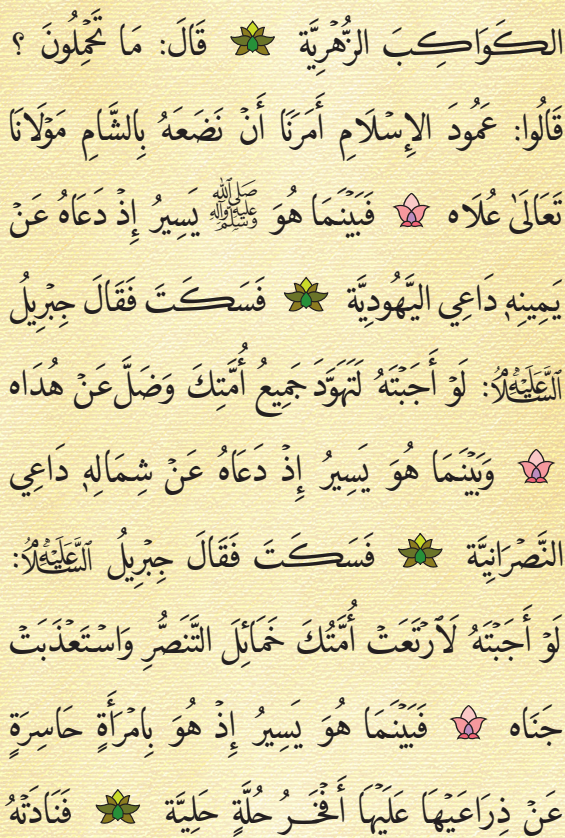 الكَوَاكِبَ الزُّهْرِيَّة قَالَ: مَا تَحْمِلُونَ ؟
قَالُوا: عَمُودَ الإِسْلَامِ أَمَرَنَا أَنْ نَضَعَهُ بِالشَّامِ مَوْلَانَا
تَعَالَىٰ عُلَاه فَبَيْنَمَا هُوَ ﷺ يَسِيرُ إِذْ دَعَاهُ عَنْ
يَمِينِهِ دَاعِي اليَهُودِيَّة فَسَكَتَ فَقَالَ جِبْرِيلُ
عَلَيْهِ السَّلَامُ: لَوْ أَجَبْتَهُ لَتَهَوَّدَ جَمِيعُ أُمَّتِكَ وَضَلَّ عَنْ هُدَاه
وَبَيْنَمَا هُوَ يَسِيرُ إِذْ دَعَاهُ عَنْ شِمَالِهِ دَاعِي
النَّصْرَانِيَّة فَسَكَتَ فَقَالَ جِبْرِيلُ عَلَيْهِ السَّلَامُ:
لَوْ أَجَبْتَهُ لَارْتَعَتْ أُمَّتُكَ خَمَائِلَ التَّنَصُّرِ وَاسْتَعْذَبَتْ
جَنَاه فَبَيْنَمَا هُوَ يَسِيرُ إِذْ هُوَ بِامْرَأَةٍ حَاسِرَةٍ
عَنْ ذِرَاعَيْهَا عَلَيْهَا أَفْخَرُ حُلَّةٍ حَلِيَّة فَنَادَتْهُ